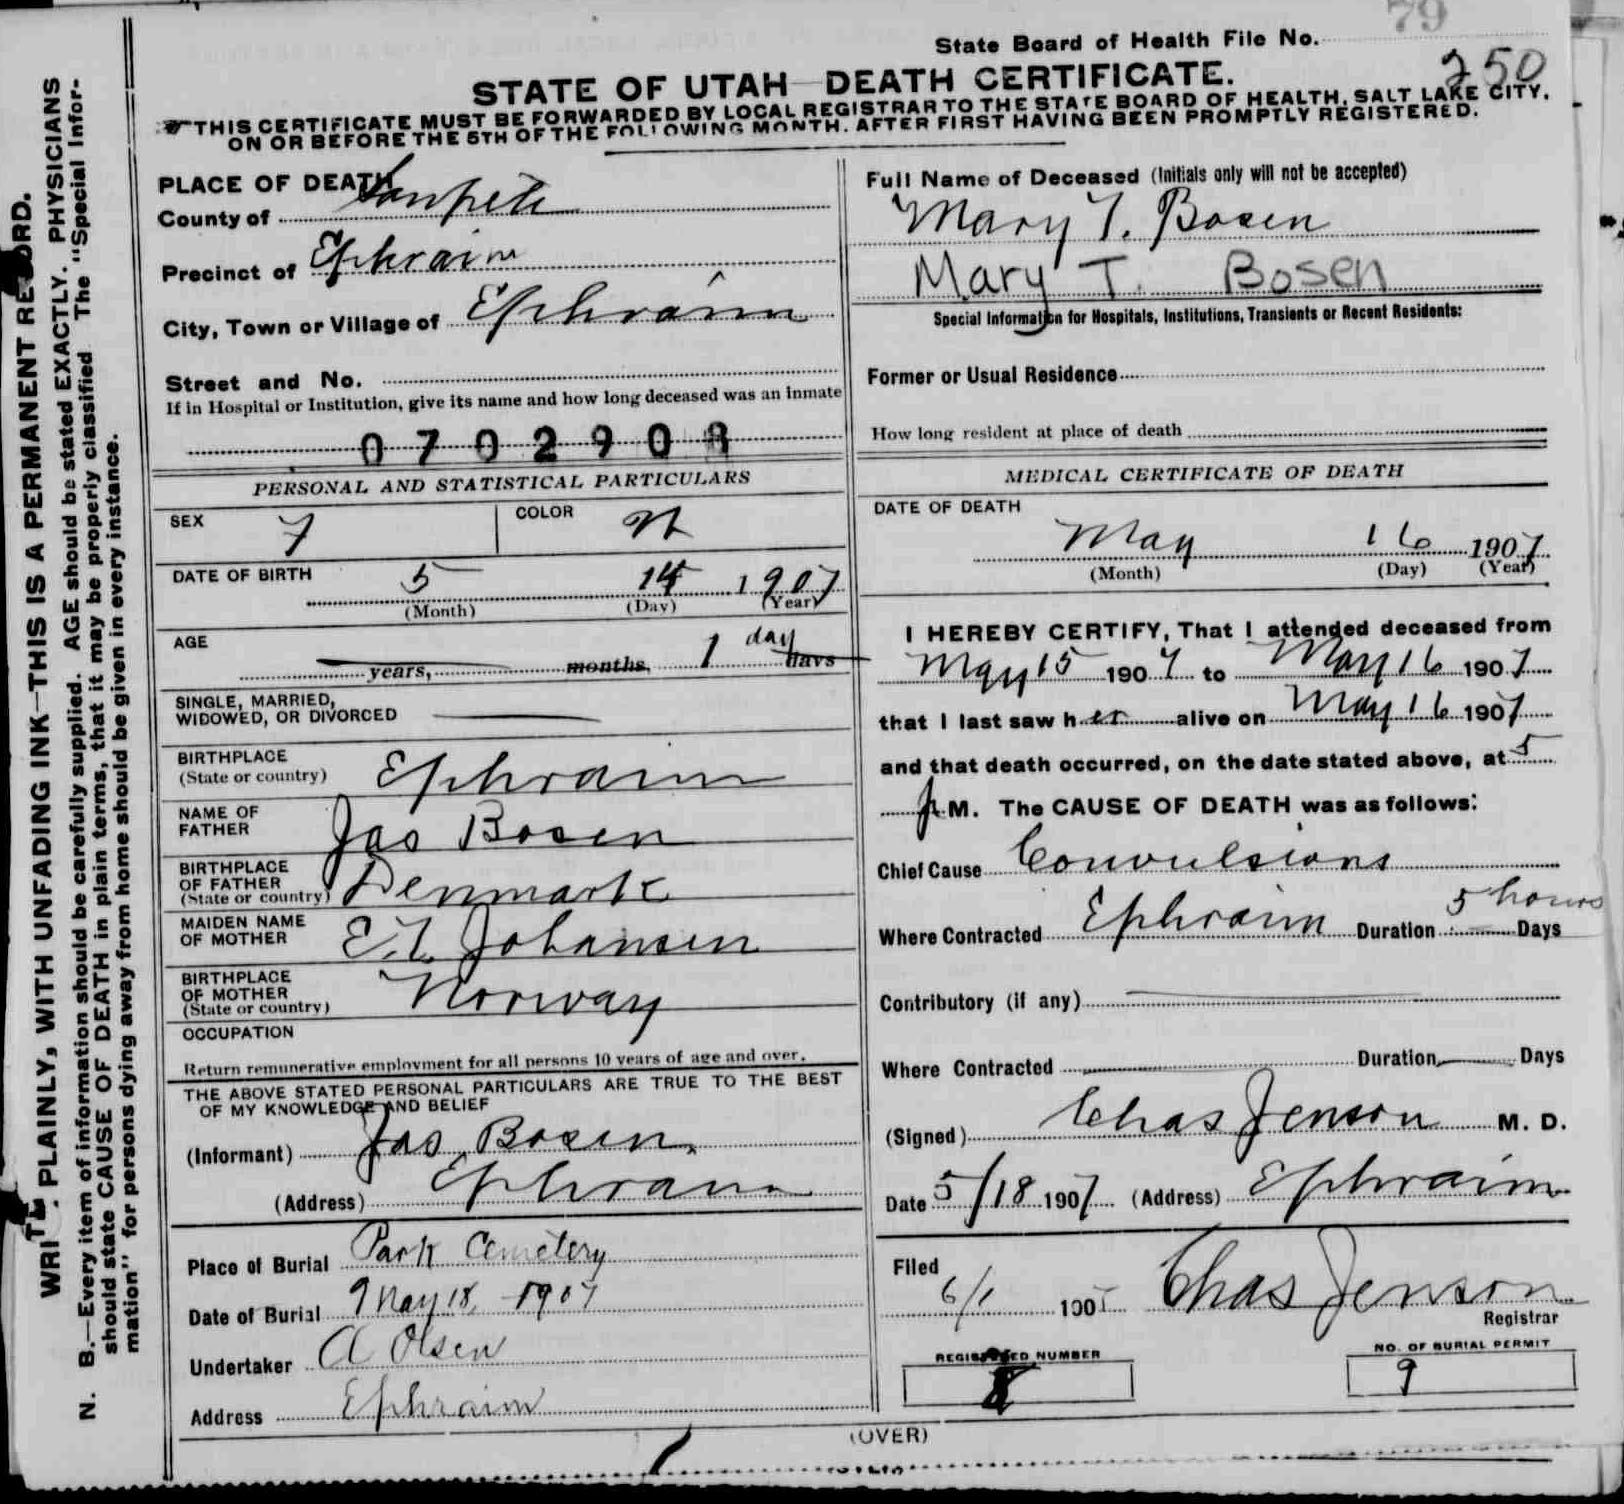 79
State Board of Health File No.
250
STATE OF UTAH—DEATH CERTIFICATE.
THIS CERTIFICATE MUST BE FORWARDED BY LOCAL REGISTRAR TO THE STATE BOARD OF HEALTH, SALT LAKE CITY,
ON OR BEFORE THE 5TH OF THE FOLLOWING MONTH, AFTER FIRST HAVING BEEN PROMPTLY REGISTERED.
WRITE PLAINLY, WITH UNFADING INK—THIS IS A PERMANENT RECORD.
N. B.—Every item of information should be carefully supplied. AGE should be stated EXACTLY. PHYSICIANS
should state CAUSE OF DEATH in plain terms, that it may be properly classified The "Special Infor-
mation" for persons dying away from home should be given in every instance.
PLACE OF DEATH
County of Sanpete
Precinct of Ephraim
City, Town or Village of Ephraim
Street and No.
If in Hospital or Institution, give its name and how long deceased was an inmate
0702908
PERSONAL AND STATISTICAL PARTICULARS
SEX F COLOR W
DATE OF BIRTH 5 14 1907
(Month) (Day) (Year)
AGE years, months, 1 day days
SINGLE, MARRIED,
WIDOWED, OR DIVORCED
BIRTHPLACE
(State or country) Ephraim
NAME OF
FATHER Jas Bosen
BIRTHPLACE
OF FATHER
(State or country) Denmark
MAIDEN NAME
OF MOTHER E. T. Johansen
BIRTHPLACE
OF MOTHER
(State or country) Norway
OCCUPATION
Return remunerative employment for all persons 10 years of age and over.
THE ABOVE STATED PERSONAL PARTICULARS ARE TRUE TO THE BEST
OF MY KNOWLEDGE AND BELIEF
(Informant) Jas Bosen.
(Address) Ephraim
Place of Burial Park Cemetery
Date of Burial May 18 1907
Undertaker A Olsen
Address Ephraim
Full Name of Deceased (Initials only will not be accepted)
Mary T. Bosen
Mary T. Bosen
Special Information for Hospitals, Institutions, Transients or Recent Residents:
Former or Usual Residence
How long resident at place of death
MEDICAL CERTIFICATE OF DEATH
DATE OF DEATH
May 16 1907
(Month) (Day) (Year)
I HEREBY CERTIFY, That I attended deceased from
May 15 1907 to May 16 1907
that I last saw her alive on May 16 1907
and that death occurred, on the date stated above, at 5
P.M. The CAUSE OF DEATH was as follows:
Chief Cause Convulsions
Where Contracted Ephraim Duration 5 hours Days
Contributory (if any)
Where Contracted Duration Days
(Signed) Chas Jenson M. D.
Date 5/18 1907 (Address) Ephraim
Filed
6/1 1907 Chas Jenson
Registrar
REGISTERED NUMBER
8
NO. OF BURIAL PERMIT
9
(OVER)